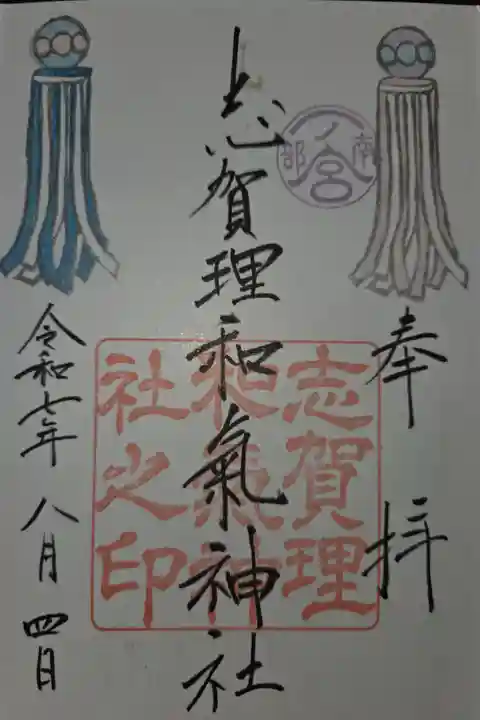 奉拝
南部一ノ宮
志賀理和氣神社
志賀理
和氣神
社之印
令和七年 八月 四日